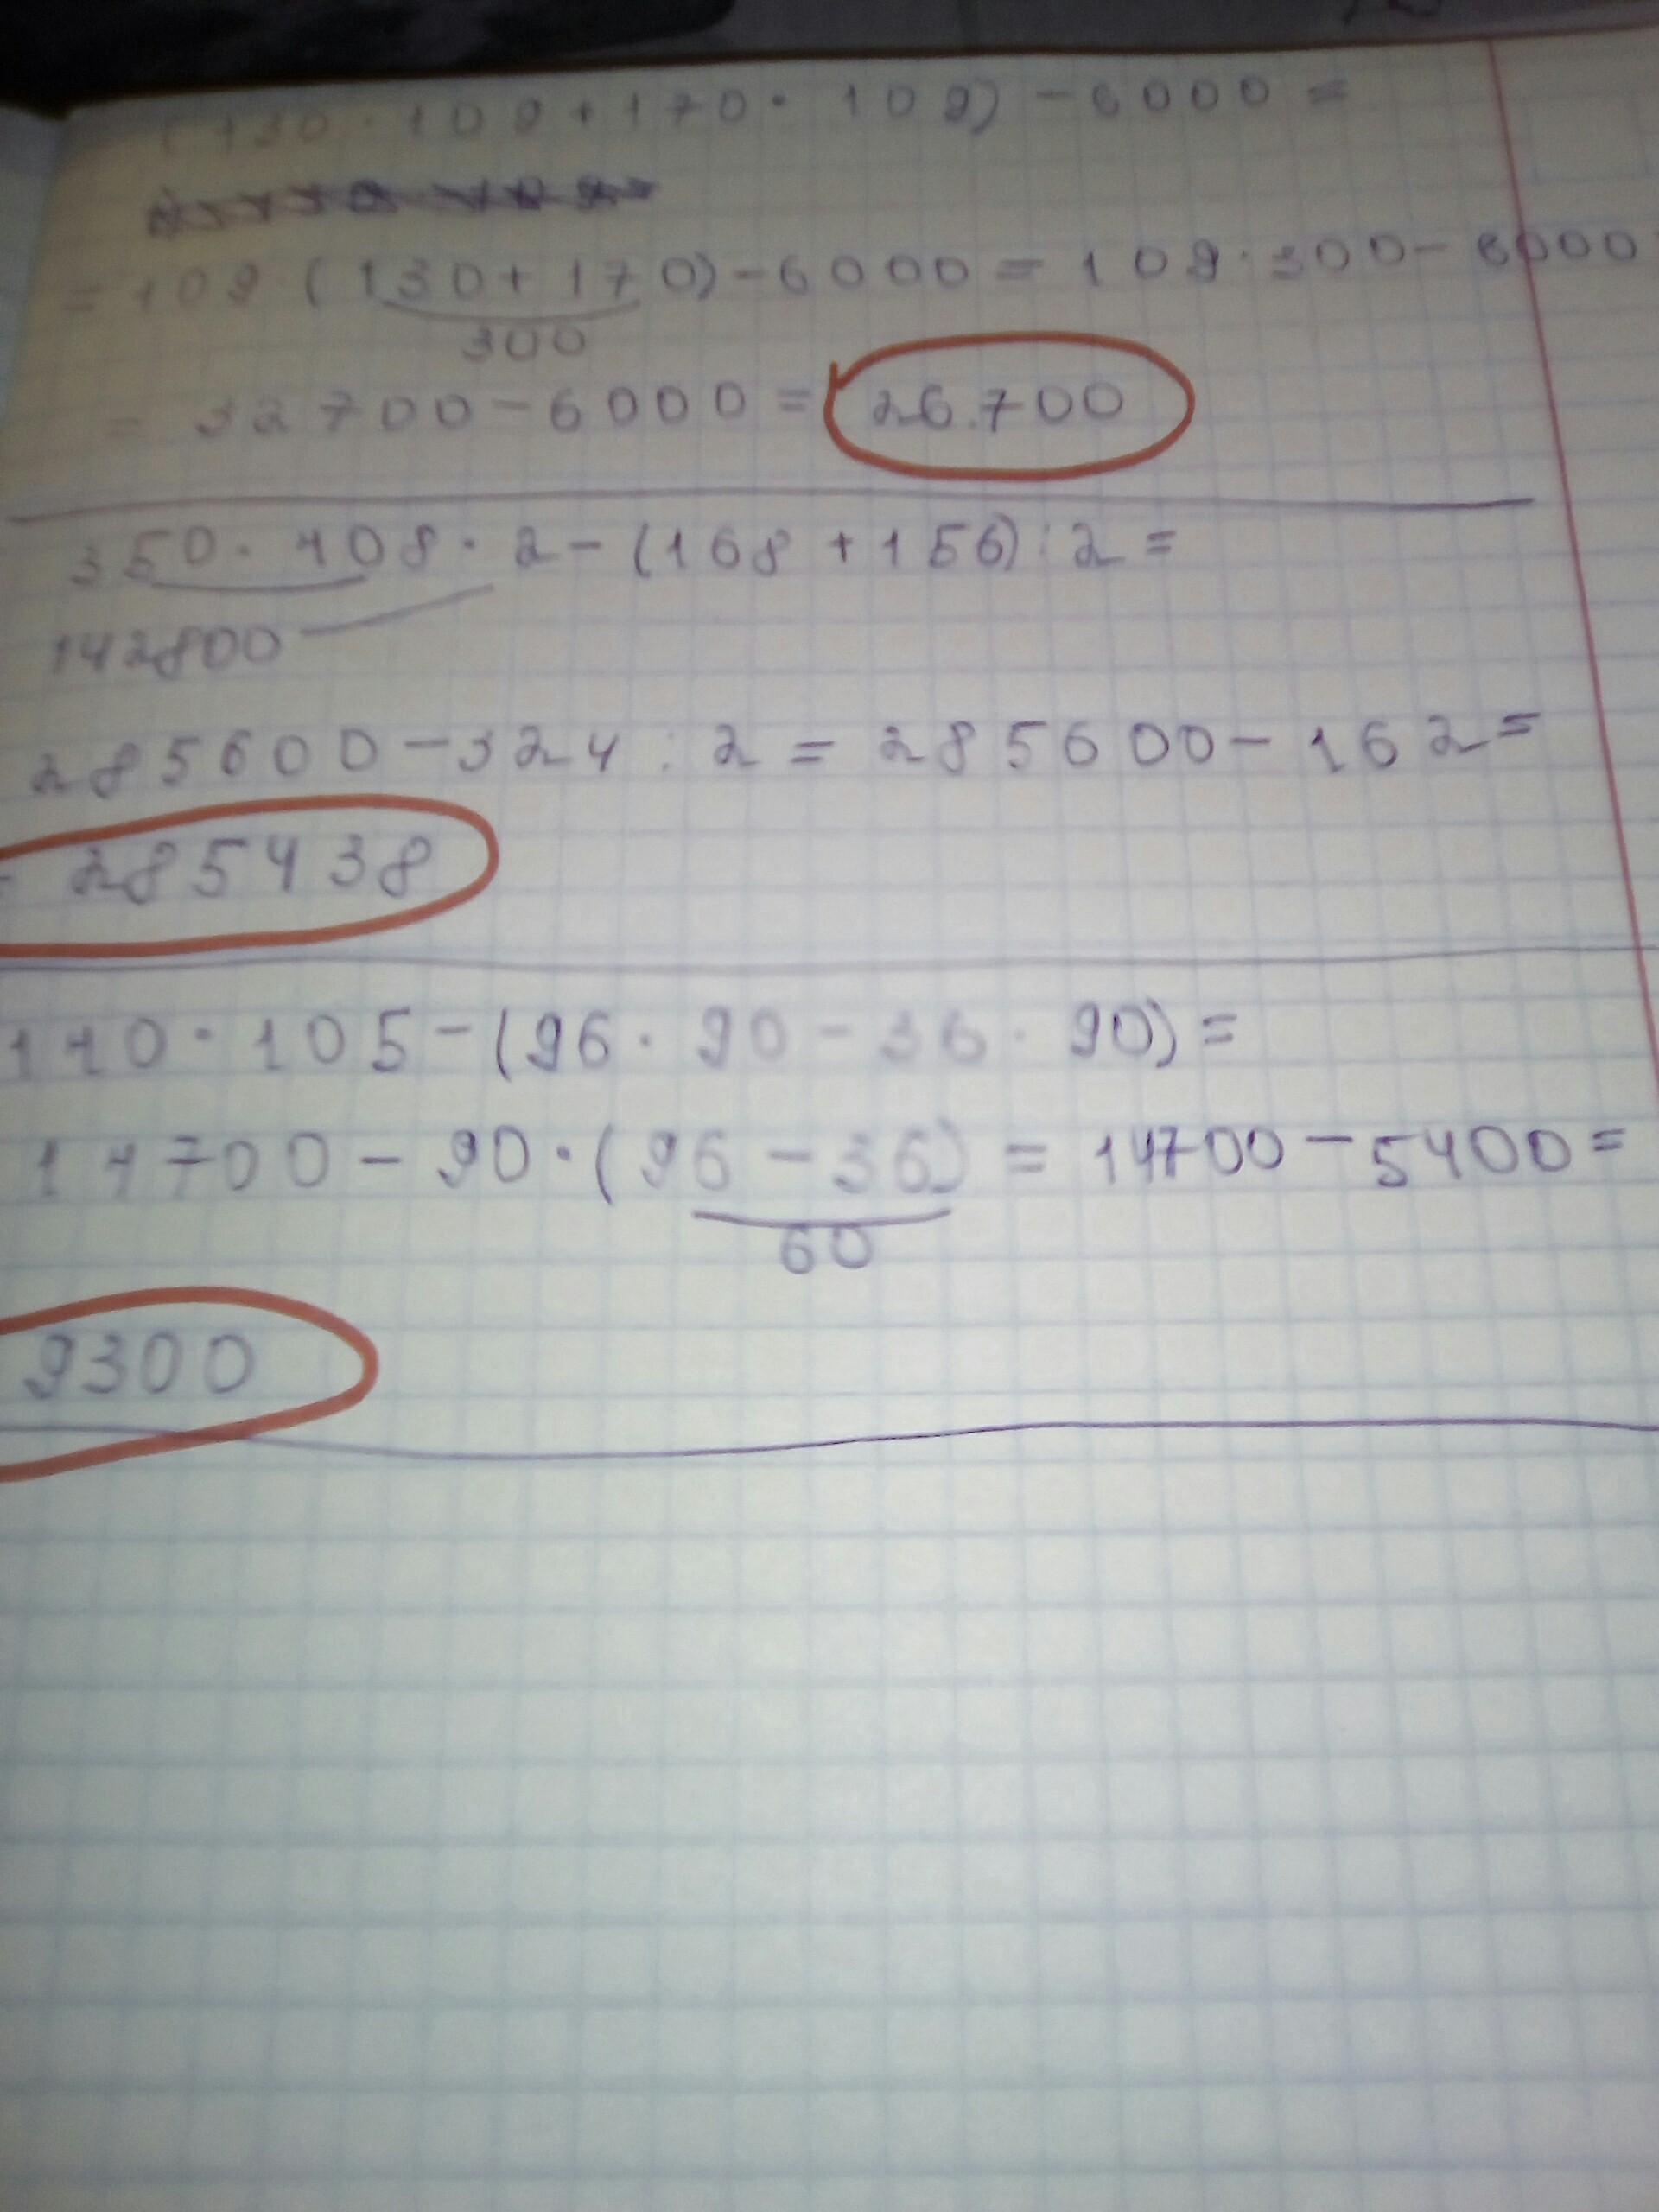 (130 · 109 + 170 · 109) - 6000 =
= 109 · (130 + 170) - 6000 = 109 · 300 - 6000
300
= 32700 - 6000 = 26.700
350 · 408 · 2 - (168 + 156) : 2 =
142800
285600 - 324 : 2 = 285600 - 162 =
= 285438
140 · 105 - (96 · 90 - 36 · 90) =
14700 - 90 · (96 - 36) = 14700 - 5400 =
60
9300